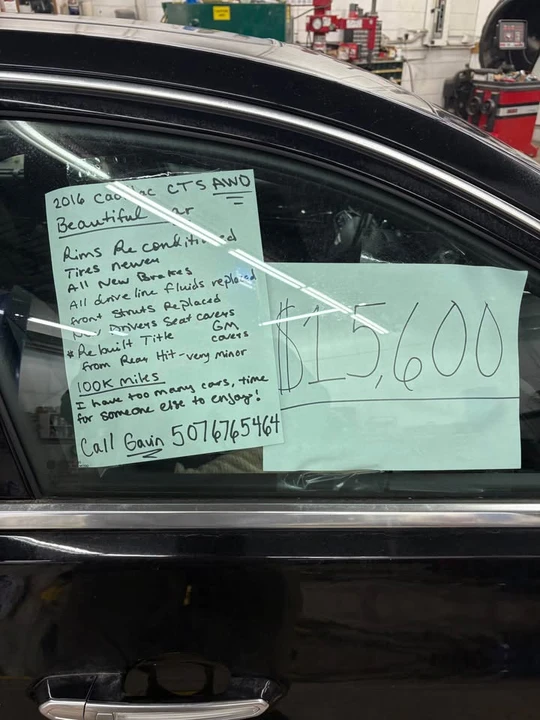 2016 Cadillac CTS AWD
Beautiful car
Rims Reconditioned
Tires newer
All New Brakes
All drive line fluids replaced
front Struts Replaced
New Drivers Seat covers
GM
covers
* Rebuilt Title
from Rear Hit - very minor
100K miles
I have too many cars, time
for someone else to enjoy!
Call Gavin 5076765464
$15,600